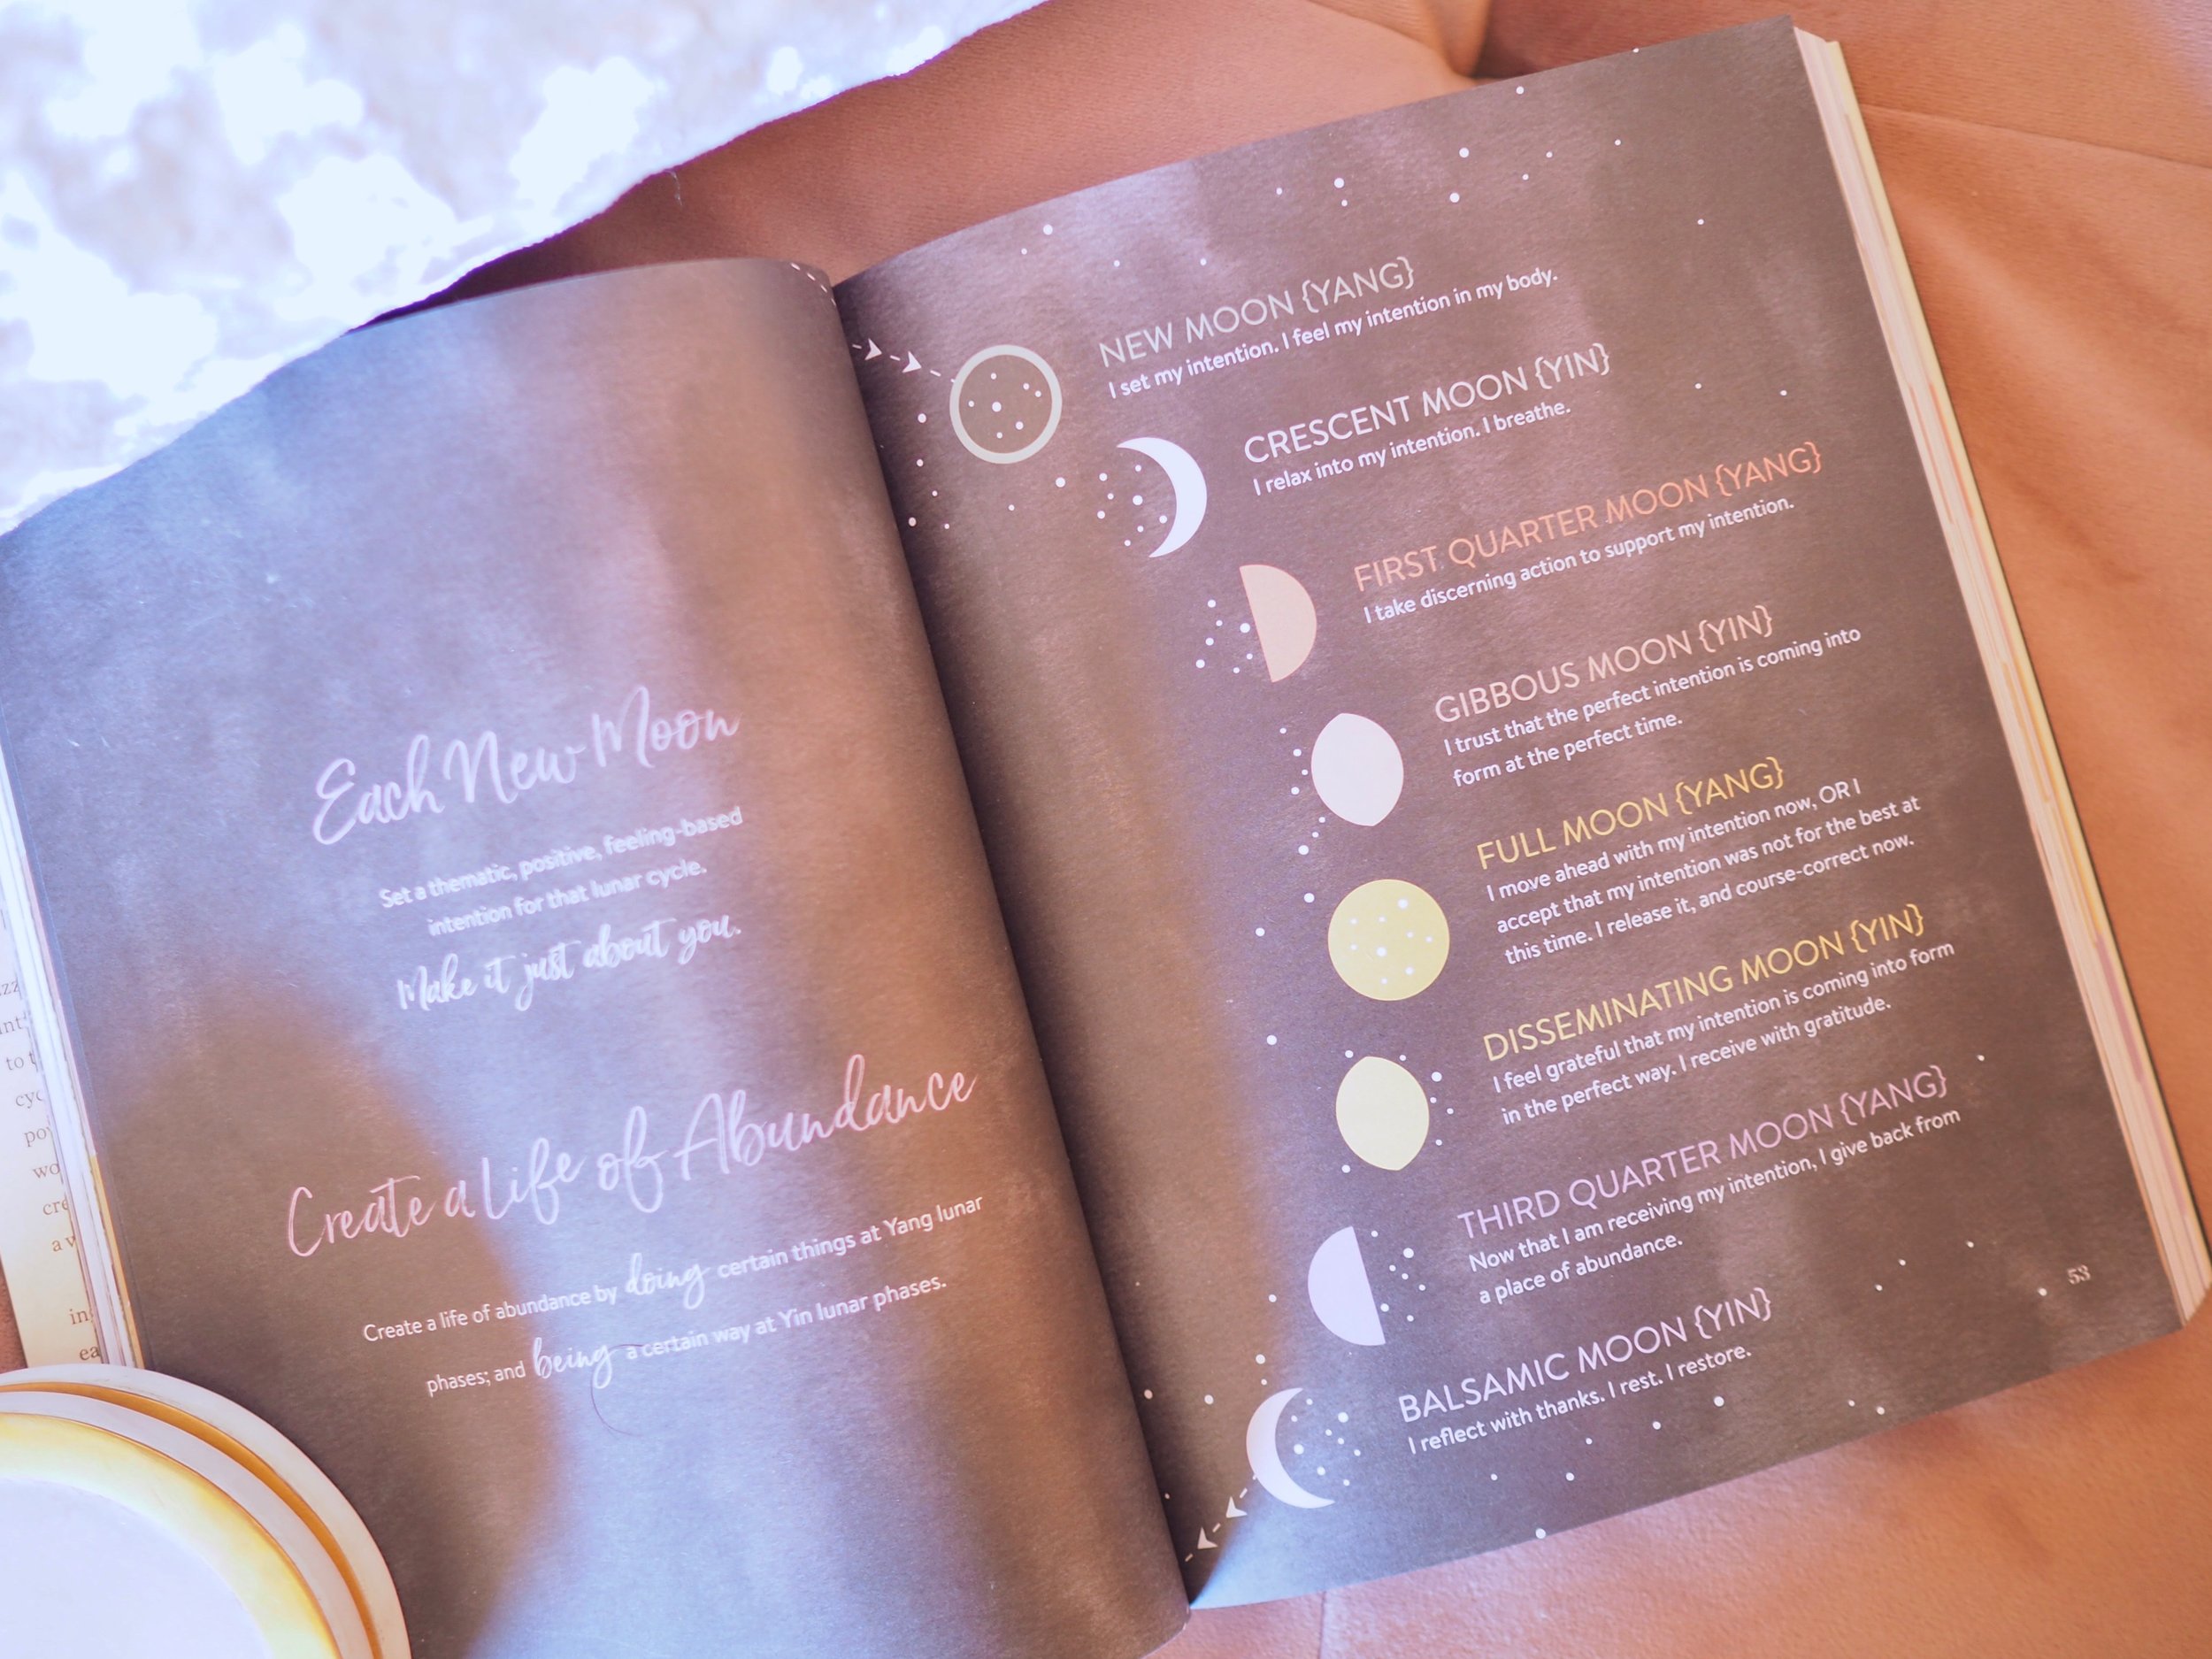 Each New Moon
Set a thematic, positive, feeling-based
intention for that lunar cycle.
Make it just about you.
Create a Life of Abundance
Create a life of abundance by doing certain things at Yang lunar
phases; and being a certain way at Yin lunar phases.
NEW MOON {YANG}
I set my intention. I feel my intention in my body.
CRESCENT MOON {YIN}
I relax into my intention. I breathe.
FIRST QUARTER MOON {YANG}
I take discerning action to support my intention.
GIBBOUS MOON {YIN}
I trust that the perfect intention is coming into
form at the perfect time.
FULL MOON {YANG}
I move ahead with my intention now, OR I
accept that my intention was not for the best at
this time. I release it, and course-correct now.
DISSEMINATING MOON {YIN}
I feel grateful that my intention is coming into form
in the perfect way. I receive with gratitude.
THIRD QUARTER MOON {YANG}
Now that I am receiving my intention, I give back from
a place of abundance.
BALSAMIC MOON {YIN}
I reflect with thanks. I rest. I restore.
53